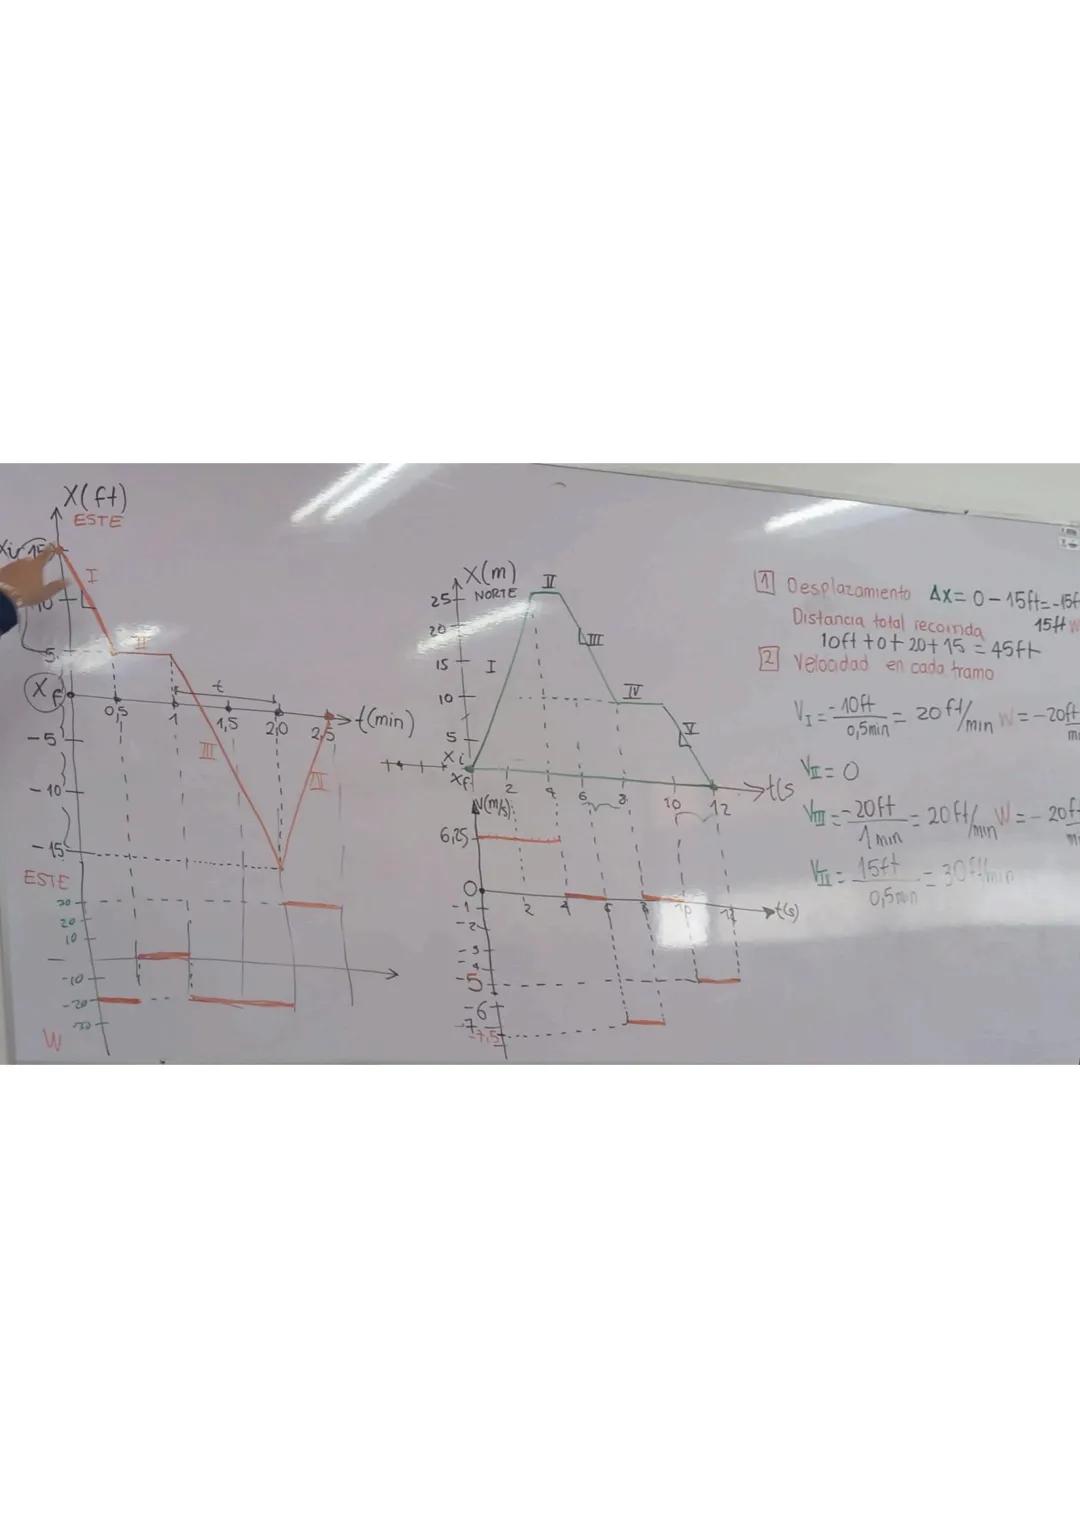 X(ft)
ESTE
Xi=15
10
I
5
II
Xf
t
0,5
1
1,5
2,0
2,5
t(min)
-5
III
IV
-10
-15
ESTE
30
20
10
-10
-20
-30
W
X(m)
NORTE
25
20
15
10
5
Xi
Xf
I
II
III
IV
V
2
4
6
8
10
12
t(s
V(m/s)
6,25
0
-1
-2
-3
-4
-5
-6
-7
-7,5
2
4
6
8
10
12
t(s)
1 Desplazamiento ΔX= 0-15ft=-15ft
15ft W
Distancia total recorrida
10ft+0+20+15=45ft
2 Velocidad en cada tramo
VI=-10ft/0,5min=20ft/min W=-20ft/m
VII=0
VIII=-20ft/1min=20ft/min W=-20f/m
=15ft/0,5min=30ft/min